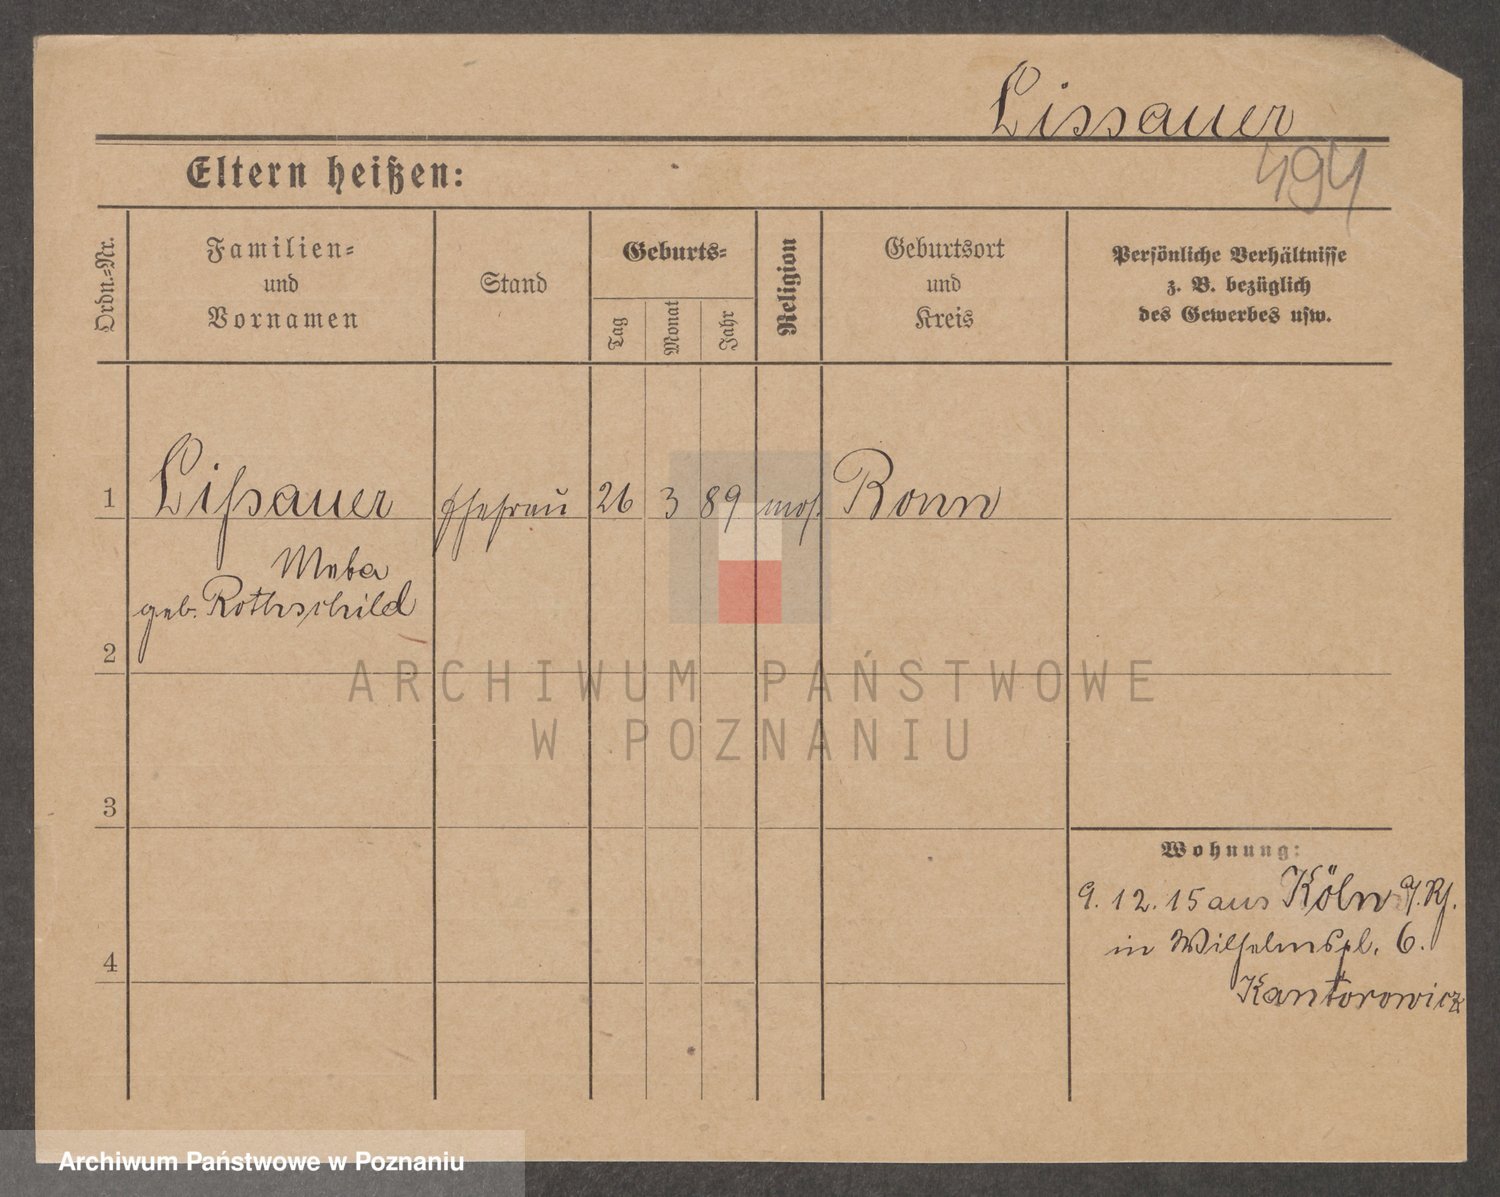 Lissauer
494
Eltern heißen:
Ordn.=Nr.
Familien=
und
Vornamen
Stand
Geburts=
Tag
Monat
Jahr
Religion
Geburtsort
und
Kreis
Persönliche Verhältnisse
z. B. bezüglich
des Gewerbes usw.
1
Lißauer
Ehefrau
26
3
89
mos.
Bonn
Meba
geb. Rothschild
2
3
4
Wohnung:
9. 12. 15 aus Köln a/Rh.
in Wilhelmspl. 6.
Kantorowicz
ARCHIWUM PAŃSTWOWE
W POZNANIU
Archiwum Państwowe w Poznaniu